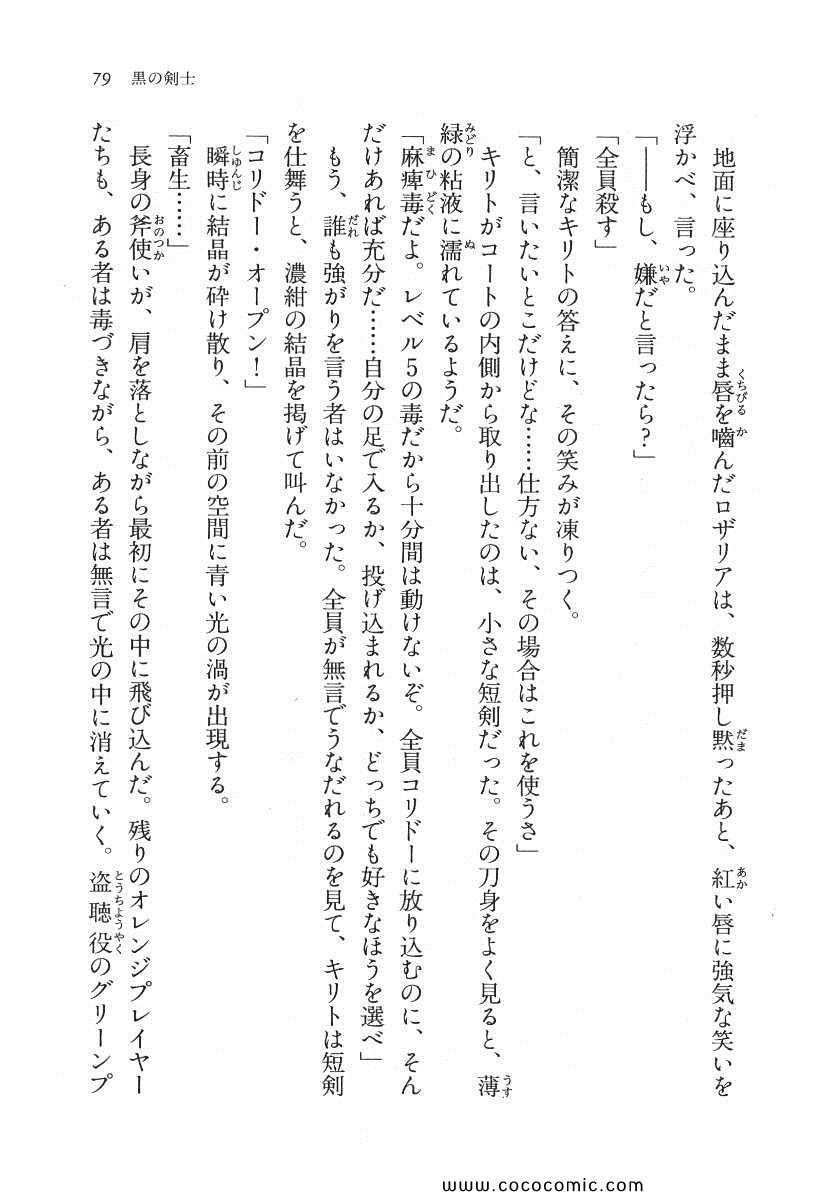 79 黒の剣士
地面に座り込んだまま唇を嚙んだロザリアは、数秒押し黙ったあと、紅い唇に強気な笑いを
浮かべ、言った。
「――もし、嫌だと言ったら?」
「全員殺す」
簡潔なキリトの答えに、その笑みが凍りつく。
「と、言いたいとこだけどな……仕方ない、その場合はこれを使うさ」
キリトがコートの内側から取り出したのは、小さな短剣だった。その刀身をよく見ると、薄
緑の粘液に濡れているようだ。
「麻痺毒だよ。レベル5の毒だから十分間は動けないぞ。全員コリドーに放り込むのに、そん
だけあれば充分だ……自分の足で入るか、投げ込まれるか、どっちでも好きなほうを選べ」
もう、誰も強がりを言う者はいなかった。全員が無言でうなだれるのを見て、キリトは短剣
を仕舞うと、濃紺の結晶を掲げて叫んだ。
「コリドー・オープン!」
瞬時に結晶が砕け散り、その前の空間に青い光の渦が出現する。
「畜生……」
長身の斧使いが、肩を落としながら最初にその中に飛び込んだ。残りのオレンジプレイヤー
たちも、ある者は毒づきながら、ある者は無言で光の中に消えていく。盗聴役のグリーンプ
www.cococomic.com